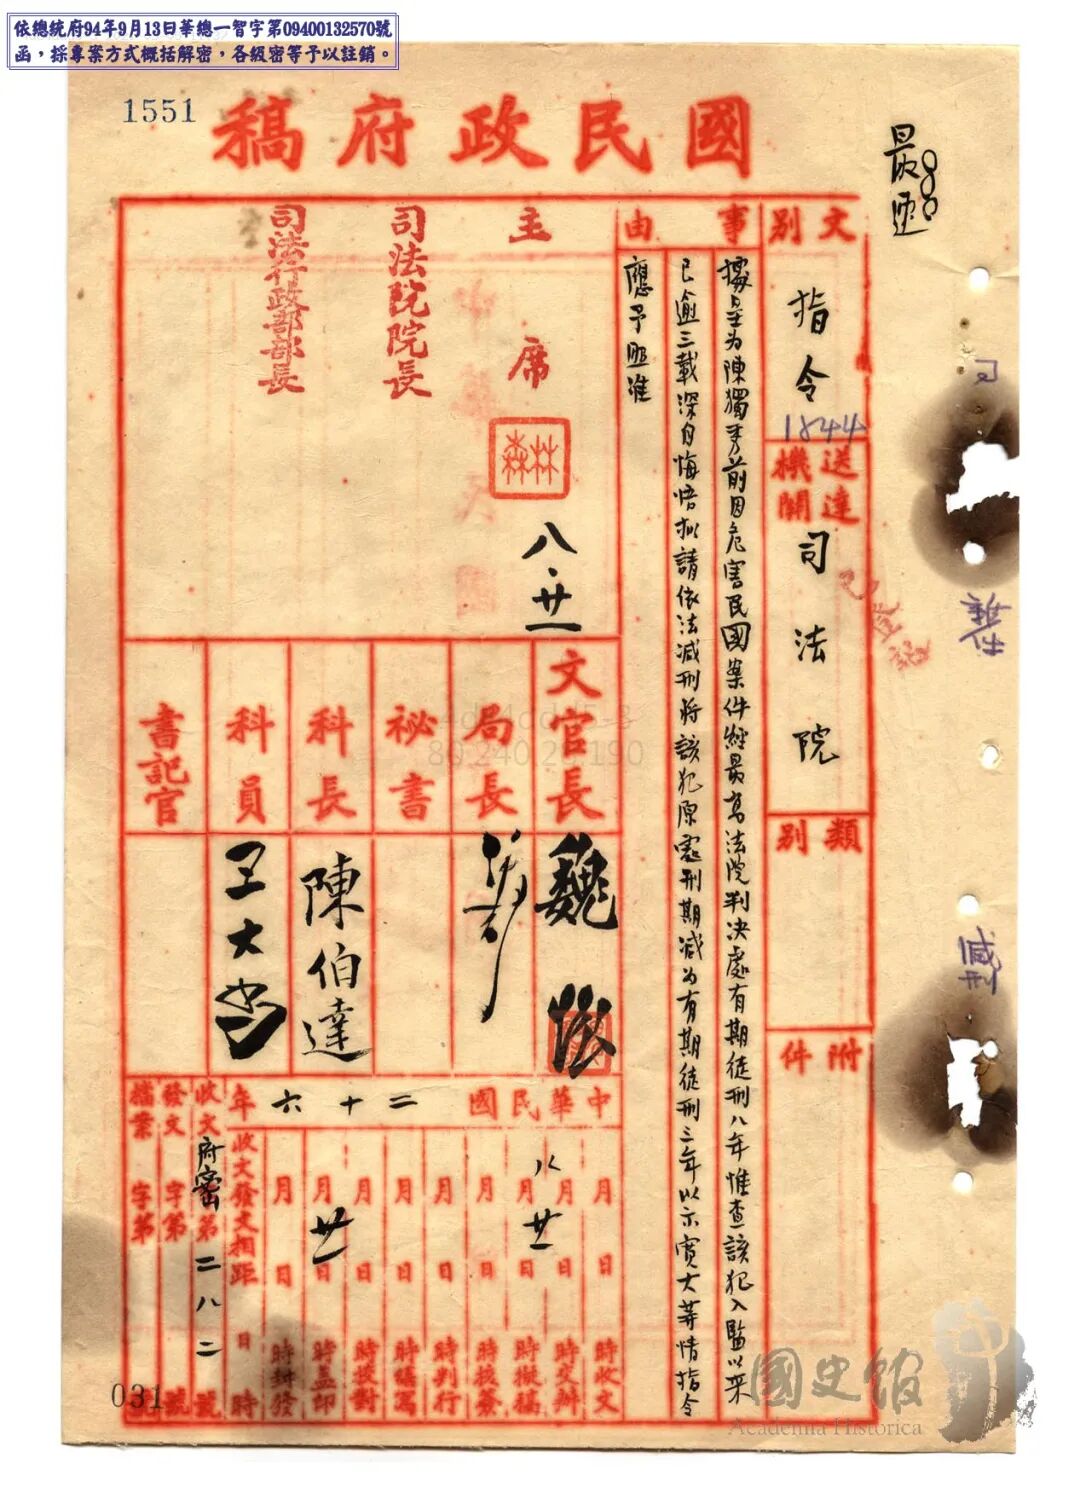 依總統府94年9月13日華總一智字第09400132570號
函，採專案方式概括解密，各級密等予以註銷。
1551
國民政府稿
最速
文別
指令
1844
送達機關
司法院
類別
附件
事由
據呈為陳獨秀前因危害民國案件經最高法院判決處有期徒刑八年惟查該犯入監以來
已逾三載深自悔悟擬請依法減刑將該犯原處刑期減為有期徒刑三年以示寬大等情指令
應予照准
主席
林森
八.廿一
司法院院長
司法行政部部長
文官長
魏懷
局長
秘書
科長
陳伯達
科員
王大
書記官
中華民國二十六年
月日時收文
八月廿一日時交辦
月日時擬稿
月日時核簽
月日時判行
月日時繕寫
月日時校對
月廿一日時蓋印
月日時封發
收文發文相距日時
收文府密字第二八二號
發文字第號
檔案字第號
已登記
減刑
031
國史館
Academia Historica
80.240.29.190